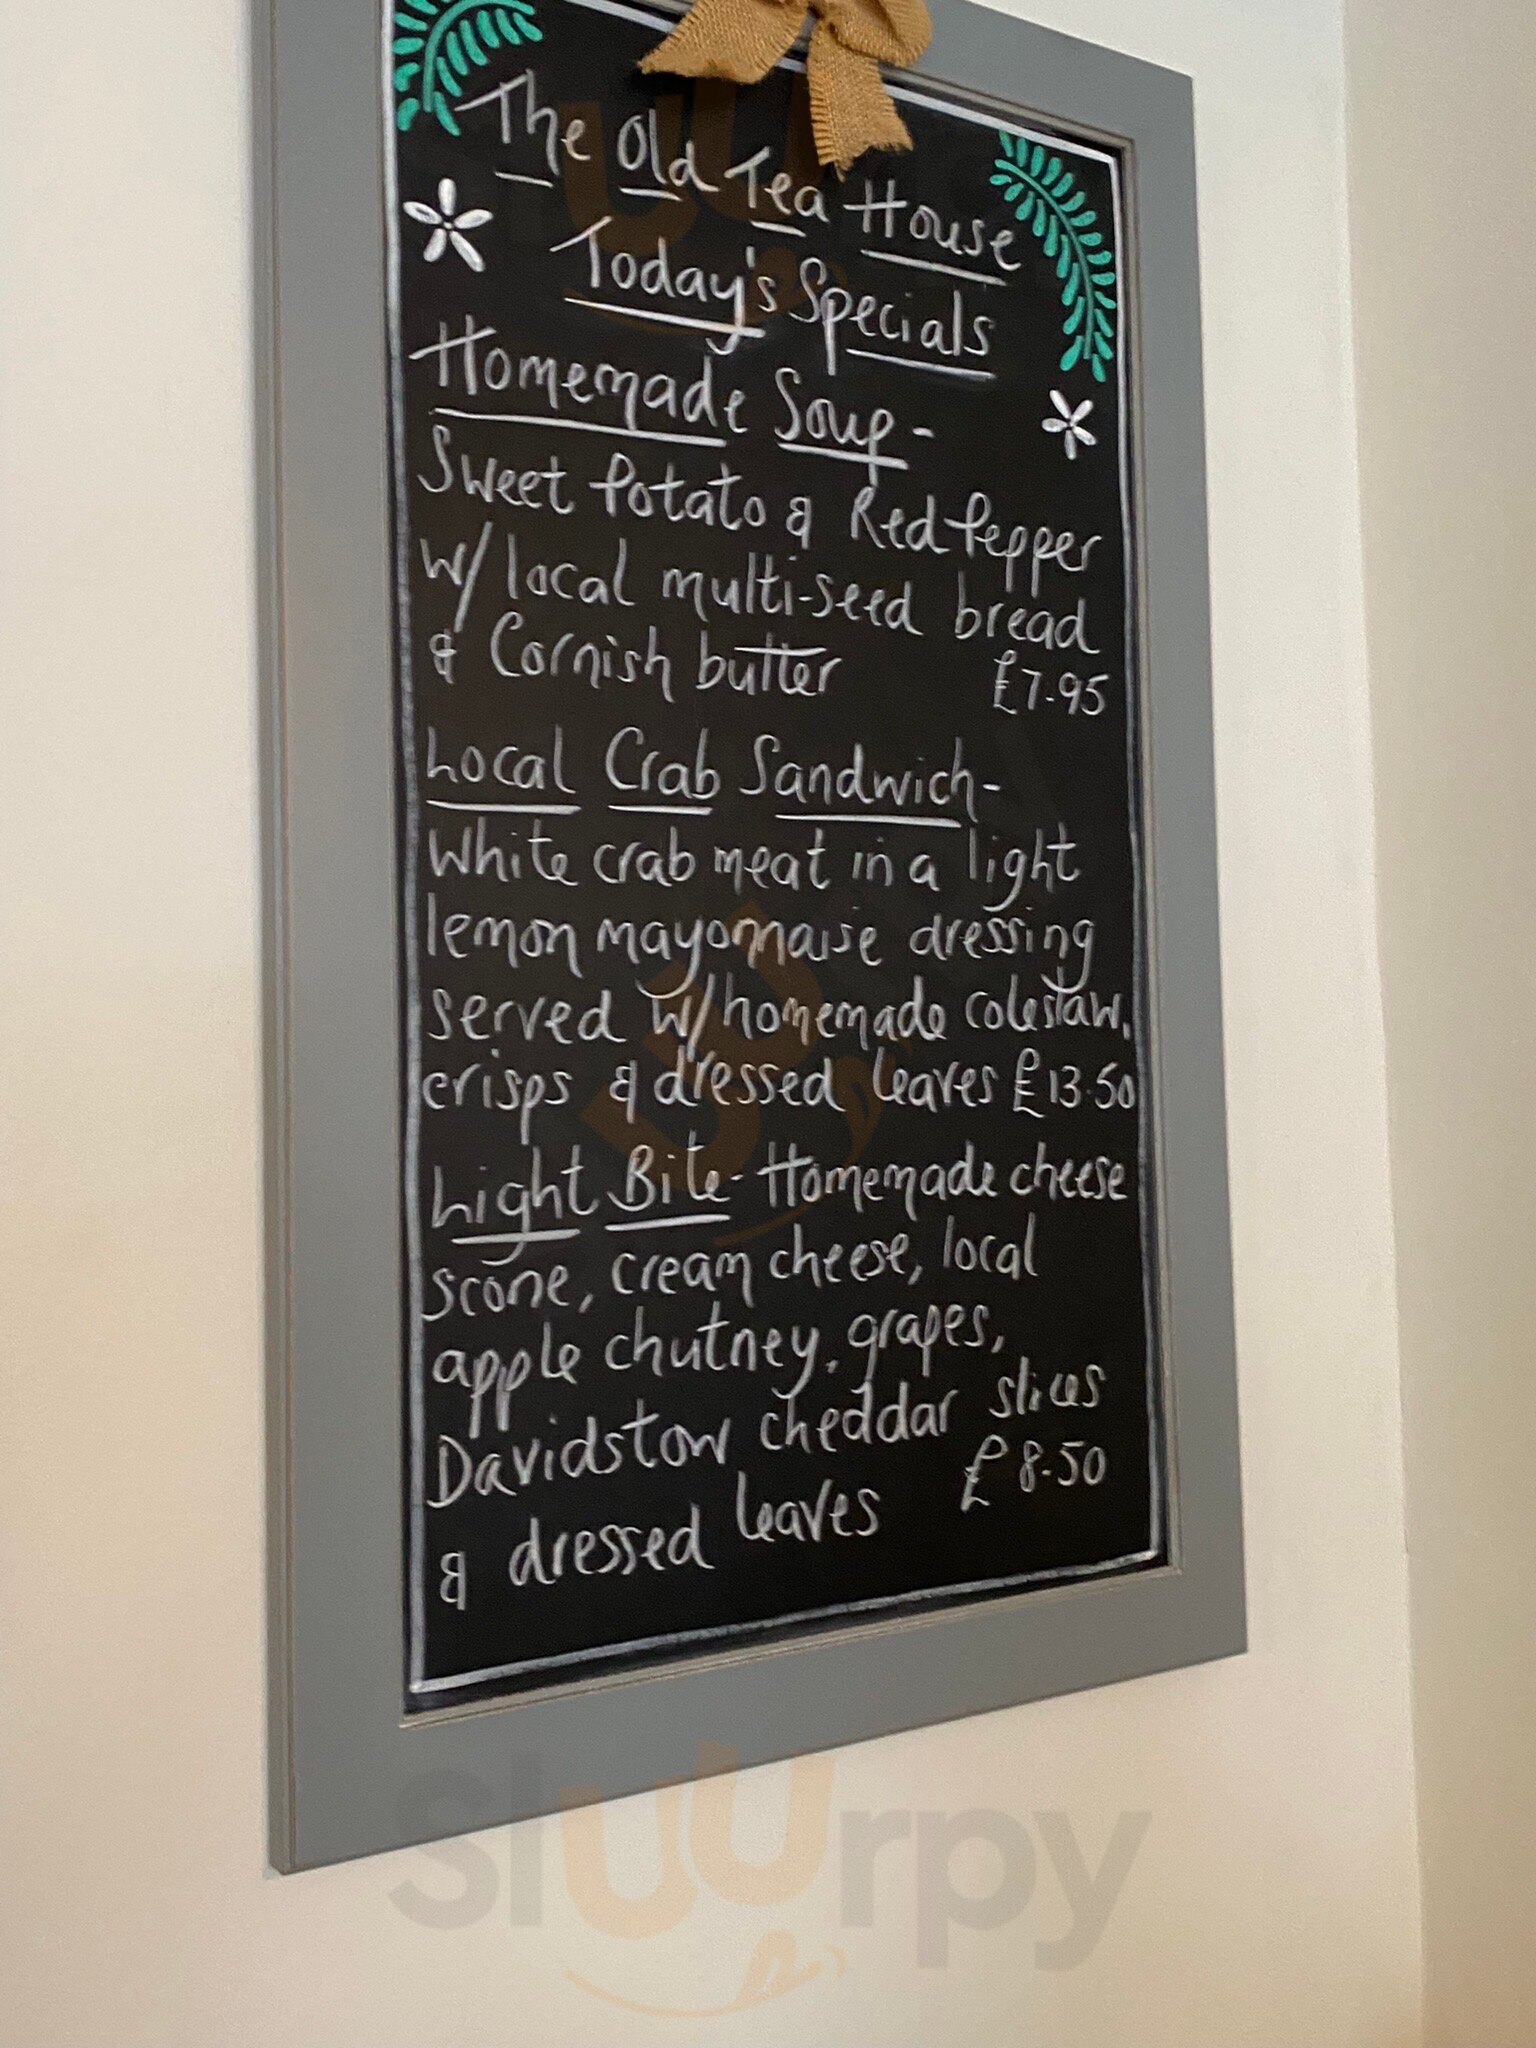 The Old Tea House
Today's Specials
Homemade Soup-
Sweet Potato & Red Pepper
w/ local multi-seed bread
& Cornish butter £7.95
Local Crab Sandwich-
White crab meat in a light
lemon mayonnaise dressing
served w/ homemade coleslaw,
crisps & dressed leaves £13.50
Light Bite- Homemade cheese
scone, cream cheese, local
apple chutney, grapes,
Davidstow cheddar slices
& dressed leaves £8.50
sluurpy